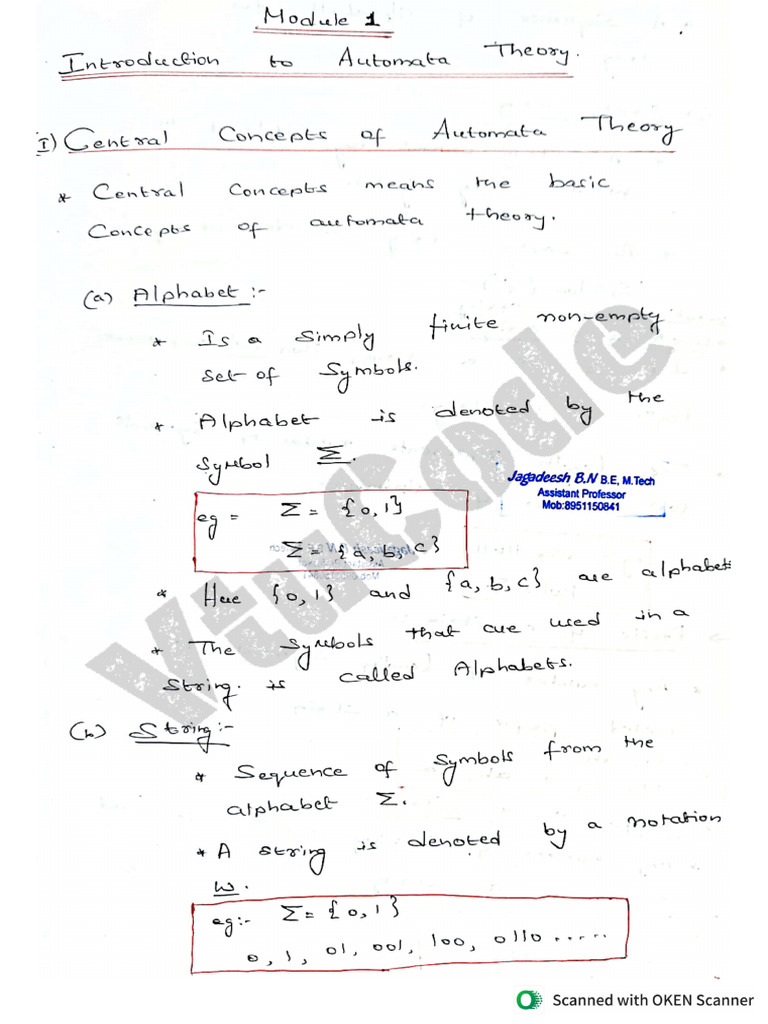 Module 1.
Introduction to Automata Theory.
I) Central Concepts of Automata Theory
* Central Concepts means the basic
Concepts of automata theory.
(a) Alphabet :-
* Is a simply finite non-empty
set of Symbols.
* Alphabet is denoted by the
symbol Σ.
Jagadeesh B.N B.E, M.Tech
Assistant Professor
Mob:8951150841
eg = Σ = {0,1}
Σ = {a, b, c}
* Here {0,1} and {a, b, c} are alphabet
* The Symbols that are used in a
String. is called Alphabets.
(b) String :-
* Sequence of Symbols from the
alphabet Σ.
* A string is denoted by a notation
w.
eg:- Σ = {0,1}
0, 1, 01, 001, 100, 0110 .....
VtuCode
Scanned with OKEN Scanner